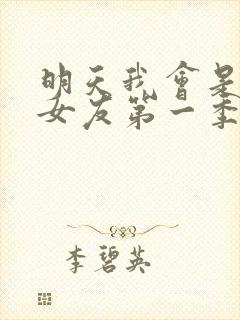 明天我會是
女友第一季
李碧英